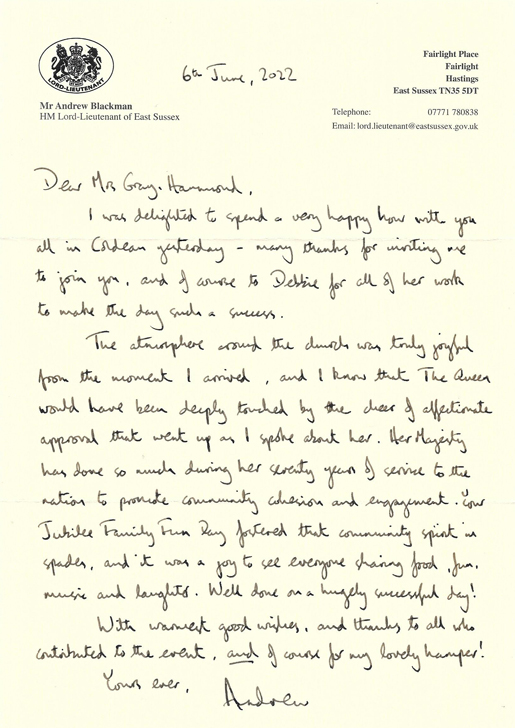 LORD-LIEUTENANT
6th June, 2022
Fairlight Place
Fairlight
Hastings
East Sussex TN35 5DT
Mr Andrew Blackman
HM Lord-Lieutenant of East Sussex
Telephone: 07771 780838
Email: lord.lieutenant@eastsussex.gov.uk
Dear Mrs Gray-Hammond,
I was delighted to spend a very happy hour with you
all in Coldean yesterday – many thanks for inviting me
to join you, and of course to Debbie for all of her work
to make the day such a success.
The atmosphere around the church was truly joyful
from the moment I arrived, and I know that The Queen
would have been deeply touched by the cheer of affectionate
approval that went up as I spoke about her. Her Majesty
has done so much during her seventy years of service to the
nation to promote community cohesion and engagement. Your
Jubilee Family Fun Day fostered that community spirit in
spades, and it was a joy to see everyone sharing food, fun,
music and laughter. Well done on a hugely successful day!
With warmest good wishes, and thanks to all who
contributed to the event, and of course for my lovely hamper!
Yours ever,
Andrew